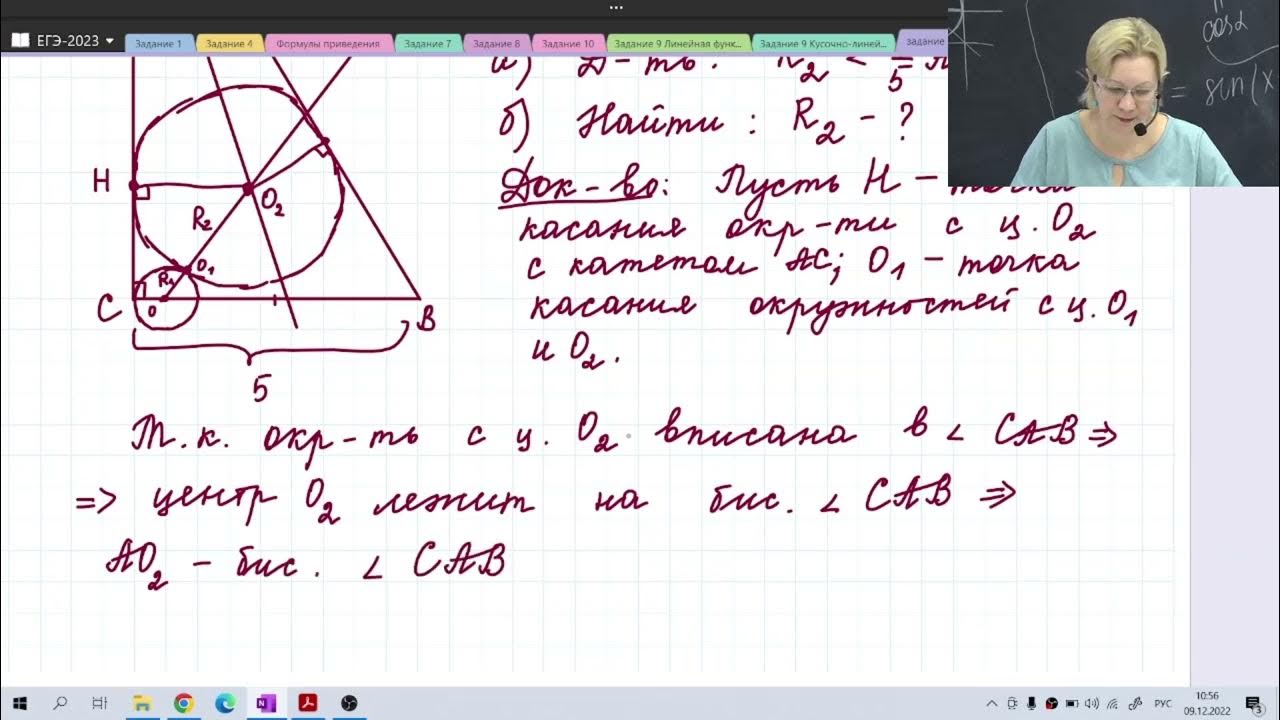 ЕГЭ-2023
Задание 1
Задание 4
Формулы приведения
Задание 7
Задание 8
Задание 10
Задание 9 Линейная функ...
Задание 9 Кусочно-линей...
задание
cos α
= sin(x
а) Д-ть: R₂ <
5
б) Найти: R₂ - ?
Док-во: Пусть H - точка
касания окр-ти с ц. O₂
с катетом AC; O₁ - точка
касания окружностей с ц. O₁
и O₂.
H
R₂
O₂
O₁
R₁
C
O
B
5
Т.к. окр-ть с ц. O₂ вписана в ∠ CAB ⇒
⇒ центр O₂ лежит на бис. ∠ CAB ⇒
AO₂ - бис. ∠ CAB
РУС
10:56
09.12.2022
3